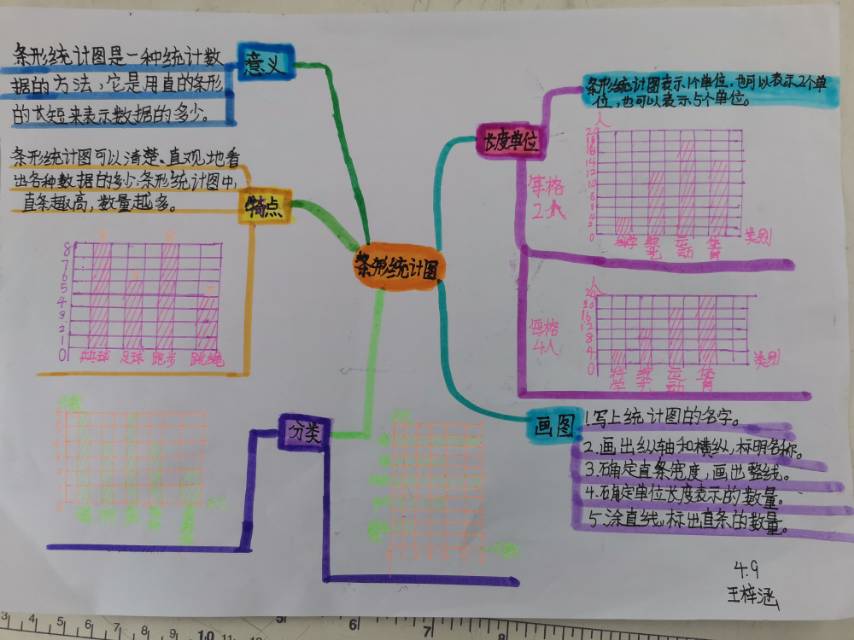 条形统计图
意义
条形统计图是一种统计数
据的方法,它是用直的条形
的长短来表示数据的多少。
特点
条形统计图可以清楚、直观地看
出各种数据的多少.条形统计图中,
直条越高,数量越多。
8
7
6
5
4
3
2
1
0
乒乓球 足球 跑步 跳绳
分类
长度单位
条形统计图表示1个单位,也可以表示2个单
位,也可以表示5个单位。
人
单格
2人
科学 数学 运动 体育
类别
人
四格
4人
科学 数学 运动 体育
类别
画图
1.写上统计图的名字。
2.画出纵轴和横纵,标明名称。
3.确定直条宽度,画出整线。
4.确定单位长度表示的数量。
5.涂直线,标出直条的数量。
4.9
王梓涵
3 4 5 6 7 8 9 10
5 6 7